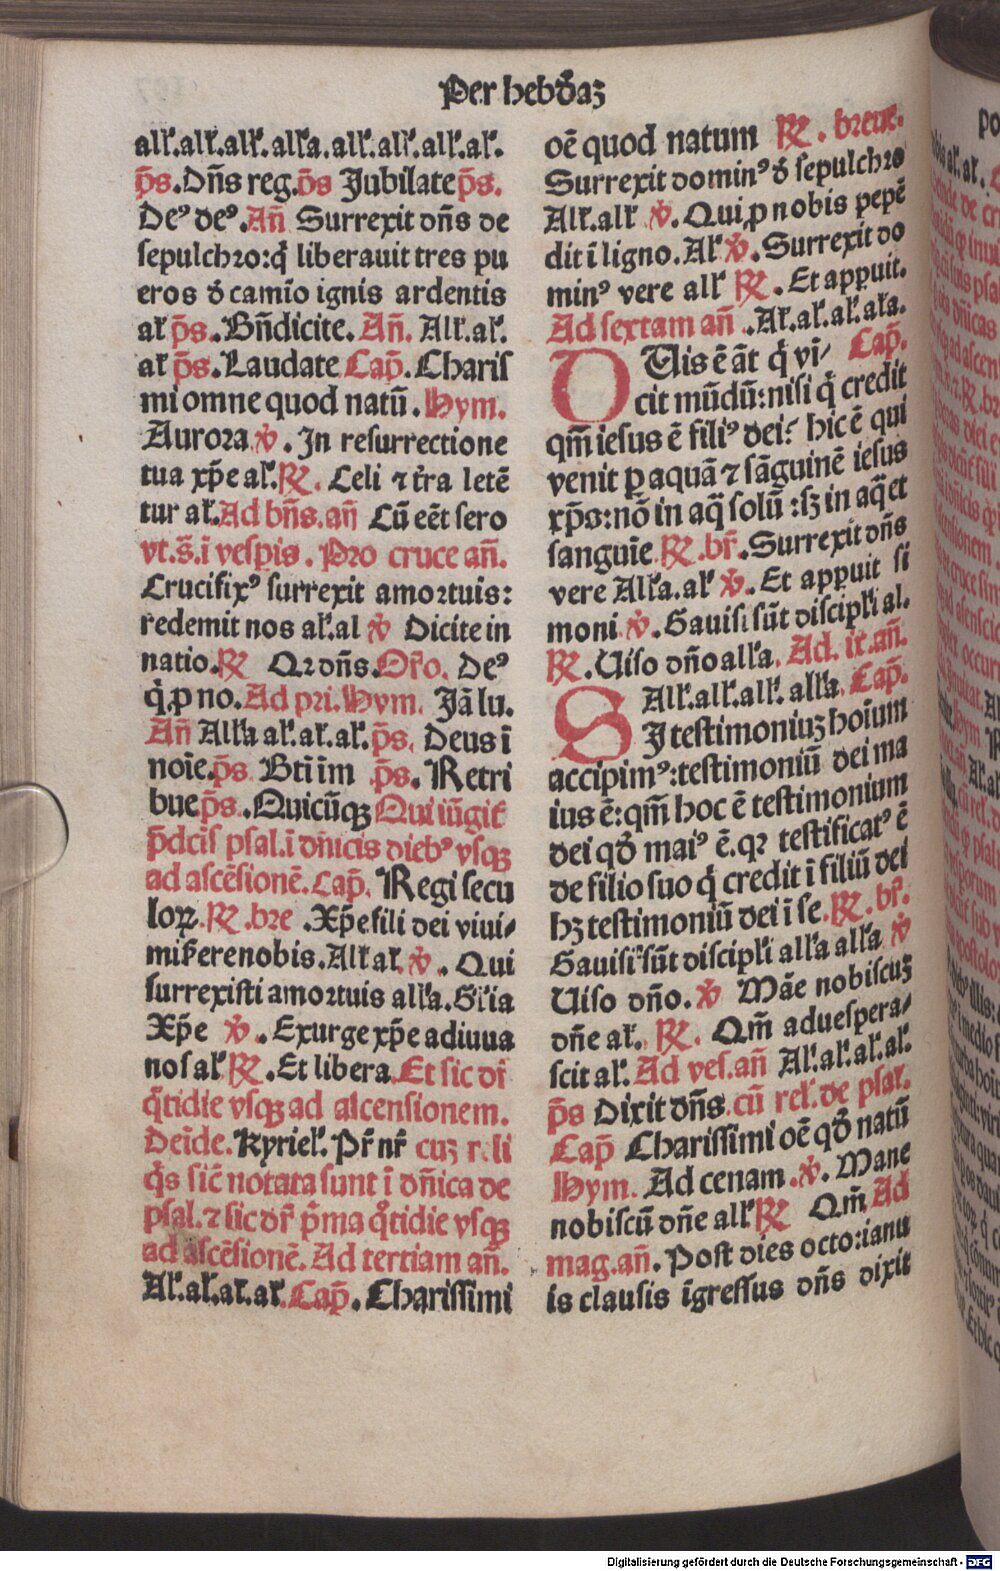 Per hebd̄aʒ
all̓.all̓.all̓.all̓a.all̓.all̓.all̓.al̓.
p̄s.Dn̄s reg.p̄s Jubilate p̄s.
Deꝰ deꝰ.An̄ Surrexit dn̄s de
sepulchro:q̇ liberauit tres pu
eros d̄ camīo ignis ardentis
al̓ p̄s.Bn̄dicite.An̄. All̓.al̓.
al̓ p̄s.Laudate Cap̄.Charis
mi omne quod natū.Hym.
Aurora ℣.In resurrectione
tua xp̄e al̓.℞. Celi ⁊ t̄ra letē
tur al̓.Ad bn̄s.an̄ Cū eēt sero
vt.s̄.ī vesp̄is. Pro cruce an̄.
Crucifixꝰ surrexit amortuis:
redemit nos al̓.al ℣ Dicite in
natio.℞ Qr dn̄s.Or̄o. Deꝰ
q̇ ꝓ no.Ad pri.Hym. Jā lu.
An̄ All̓a al̓.al̓.al̓.p̄s. Deus ī
noīe.p̄s Bt̄i im p̄s.Retri
bue p̄s.Quicūqꝫ Qui iūgit᷑
p̄dcis̄ psal.ī dn̄icis diebꝰ vsqꝫ
ad ascēsionē.Cap̄. Regi secu
loꝝ.℞.bre .Xp̄e fili dei viui/
miserere nobis.All̓ al̓.℣. Qui
surrexisti amortuis all̓a.Gl̓ia
Xp̄e ℣.Exurge xp̄e adiuua
nos al̓ ℞.Et libera.Et sic dr̄
q̄tidie vsqꝫ ad ascensionem.
Deīde.Kyriel̓.Pr̄ nr̄ cuꝫ r li
q̇s sic̄ notata sunt ī dn̄ica de
psal.⁊ sic dr̄ p̄ma q̄tidie vsqꝫ
ad ascēsionē.Ad tertiam an̄.
Al̓.al̓.al̓.al̓.Cap̄.Charissimi
oē quod natum ℞.breue.
Surrexit dominꝰ d̄ sepulchro
All̓.all̓ ℣.Qui ꝓ nobis pepē
dit ī ligno.Al̓ ℣.Surrexit do
minꝰ vere all̓ ℞.Et appuit.
Ad sextam an̄ .Al̓.al̓.al̓.al̓a.
QUis ē āt q̇ vī/ Cap̄.
cit mūdū:nisi q̇ credit
qm̄ iesus ē filiꝰ dei? hic ē qui
venit ꝑ aquā ⁊ sāguinē iesus
xp̄s:nō in aq̄ solū:sꝫ in aq̄ et
sanguīe ℞.br̄.Surrexit dn̄s
vere All̓a.al̓ ℣.Et appuit si
moni ℣.Gauisi sūt discipl̓i al.
℞.Uiso dn̄o all̓a. Ad.ix.an̄.
All̓.all̓.all̓. all̓a.Cap̄.
SJ testimoniuꝫ hoīum
accipimꝰ:testimoniū dei ma
ius ē:qm̄ hoc ē testimonium
dei qd̄ maiꝰ ē.qꝛ testificatꝰ ē
de filio suo q̇ credit ī filiū dei
hꝫ testimoniū dei ī se.℞.br̄.
Gauisi sūt discipl̓i all̓a all̓a ℣
Uiso dn̄o.℣ Māe nobiscuꝫ
dn̄e al̓. ℞. Qm̄ aduespera/
scit al̓.Ad ves.an̄ Al̓.al̓.al̓.al̓.
p̄s Dixit dn̄s.cū rel̓.de psal̓.
Cap̄ Charissimi oē qd̄ natū
Hym. Ad cenam.℣.Mane
nobiscū dn̄e all̓ ℞ Qm̄ Ad
mag.an̄.Post dies octo:ianu
is clausis īgressus dn̄s dixit
Digitalisierung gefördert durch die Deutsche Forschungsgemeinschaft - DFG